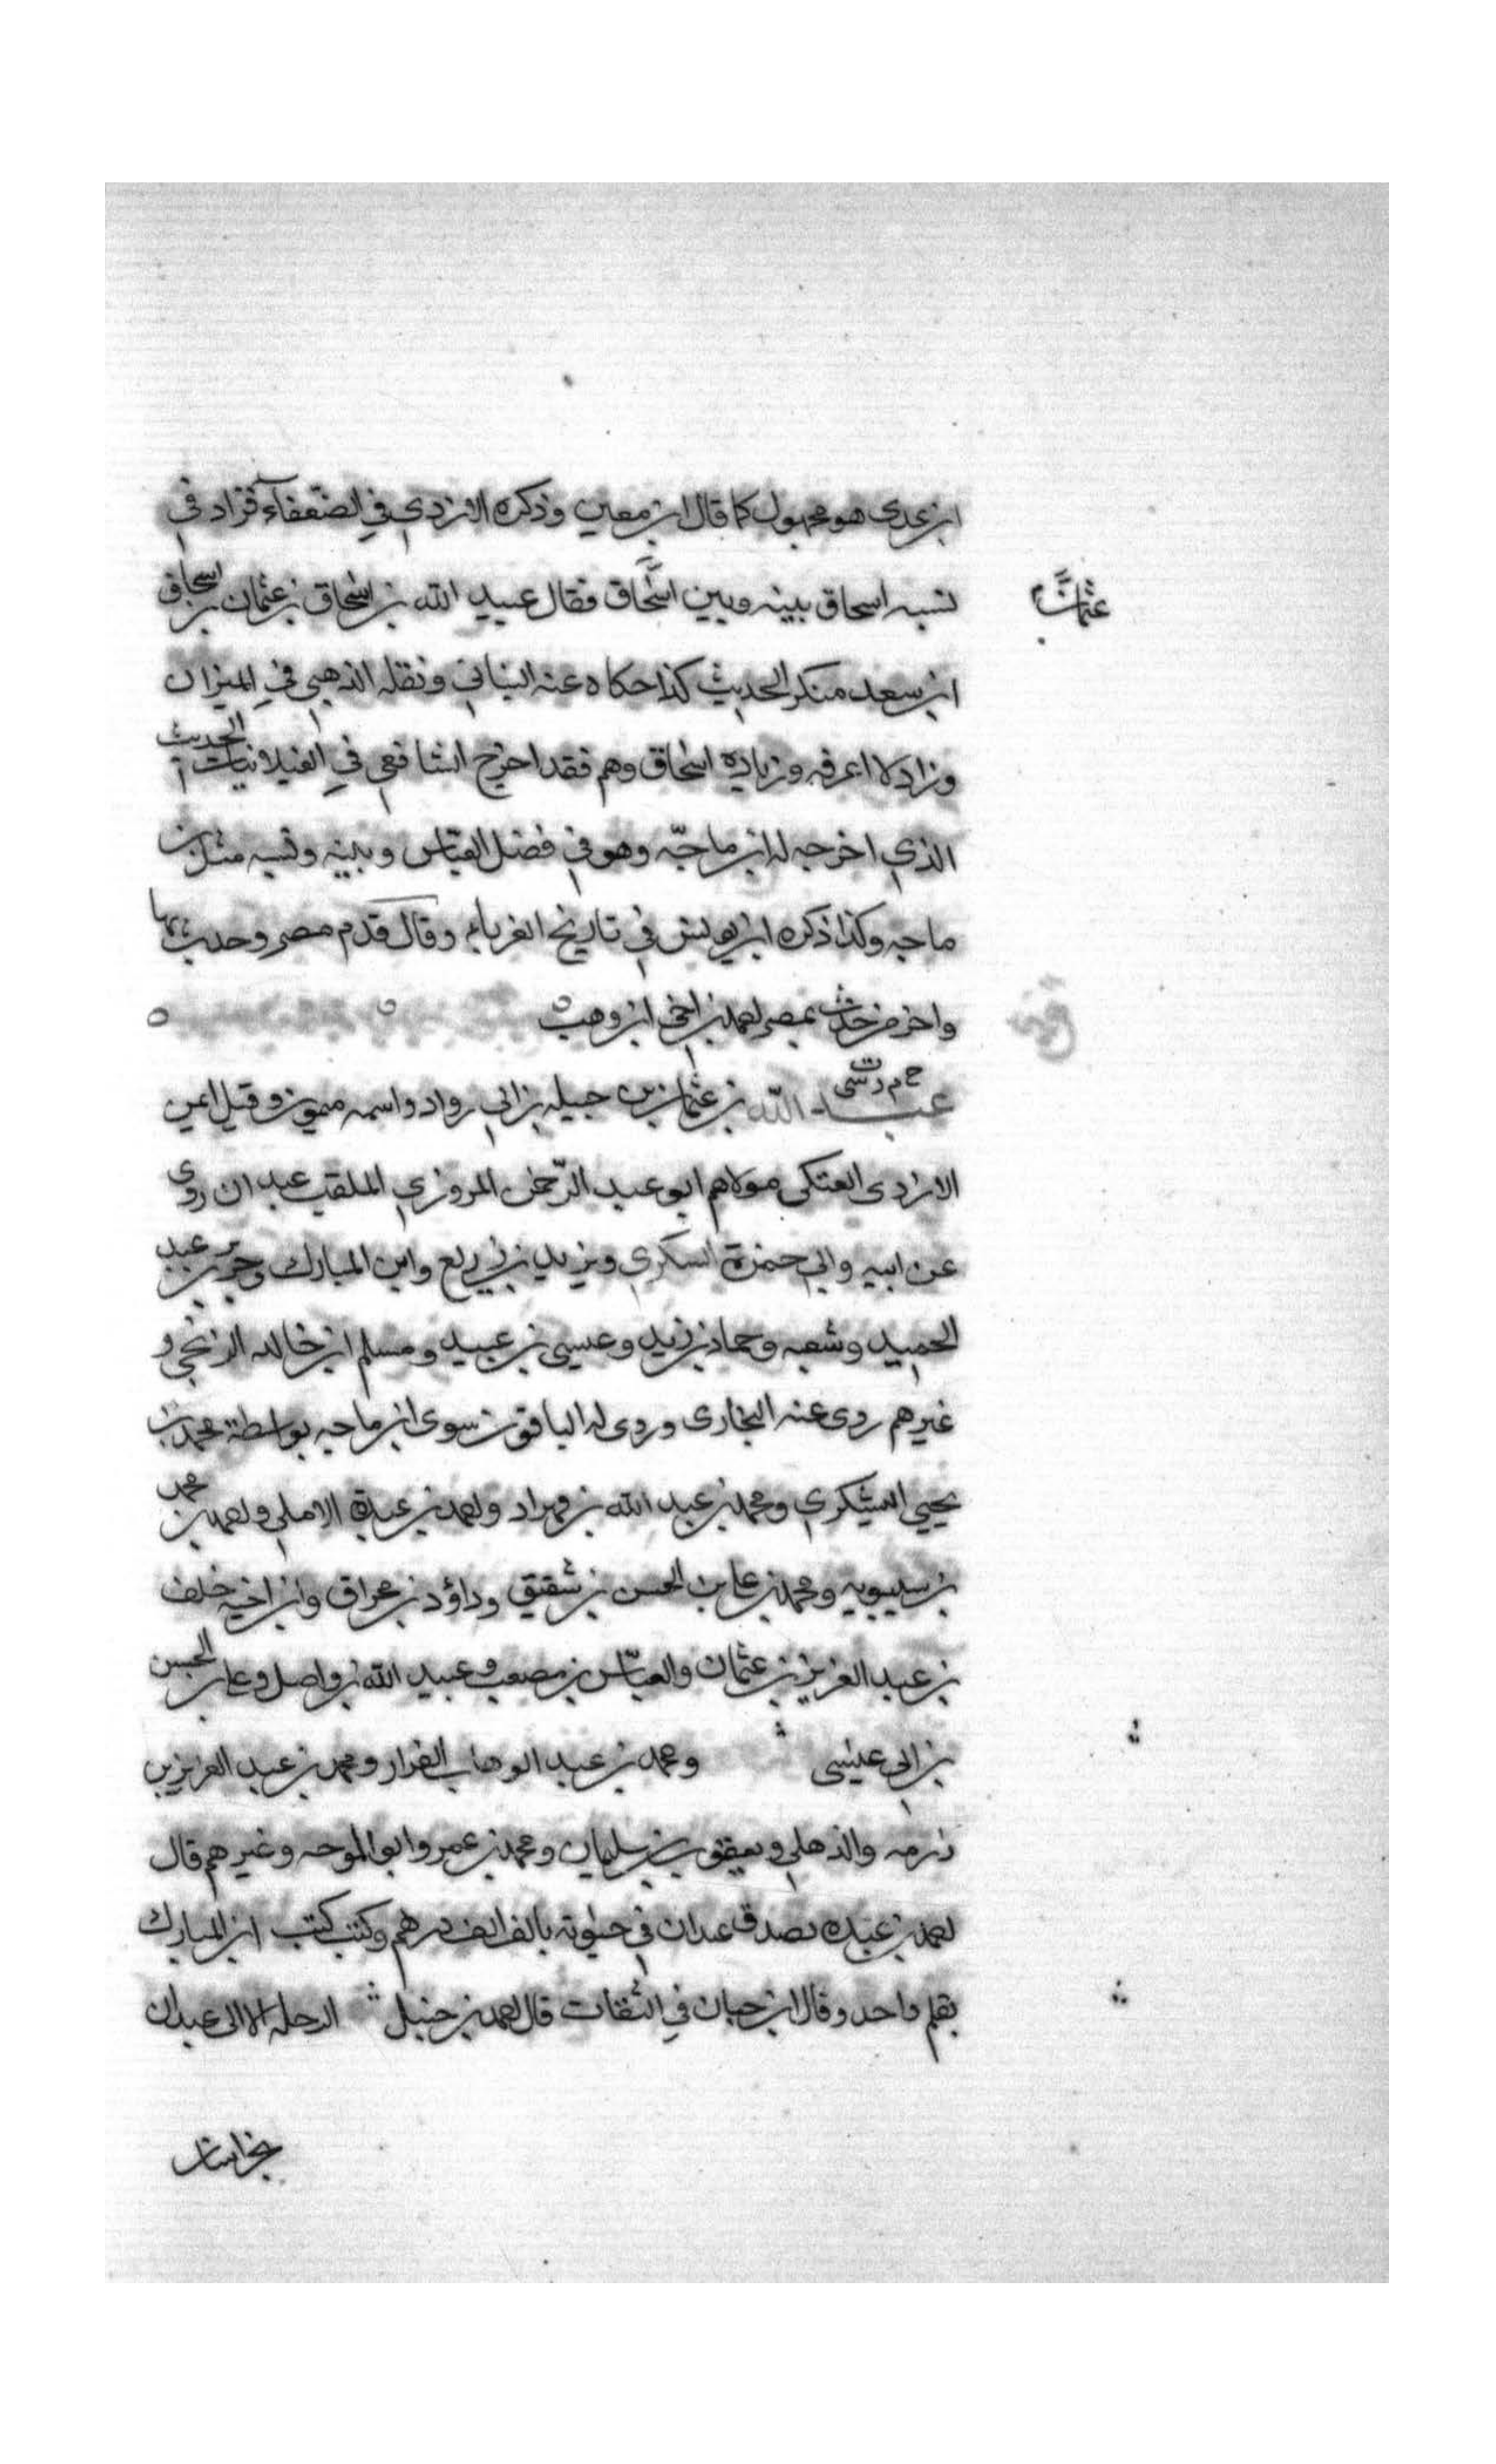 ابن عدي هو مجهول كما قال ابن معين وذكره الازدي في الضعفاء فزاد في
نسبه اسحاق بينه وبين اسحاق فقال عبيد الله بن اسحاق بن عثمان بن اسحاق
عثمان
ابن سعد منكر الحديث كذا حكاه عنه البناني ونقله الذهبي في الميزان
وزاد لا اعرفه وزيادة اسحاق وهم فقد اخرج الشافعي في الغيلانيات الحديث
الذي اخرجه له ابن ماجه وهو في فضل العباس وبينه ونسبه مثل ابن
ماجه وكذا ذكره ابن يونس في تاريخ الغرباء وقال قدم مصر وحدث بها
واخر من حدث بمصر احمد بن اخي ابن وهب
خ م د ت س
عبد الله بن عثمان بن جبله بن ابي رواد واسمه ميمون وقيل ايمن
الازدي العتكي مولاهم ابو عبد الرحمن المروزي الملقب عبدان روى
عن ابيه وابي حمزة السكري ويزيد بن زريع وابن المبارك وجرير بن عبد
الحميد وشعبه وحماد بن زيد وعيسى بن عبيد ومسلم ابن خالد الزنجي و
غيرهم روى عنه البخاري وروى له الباقون سوى ابن ماجه بواسطة محمد بن
يحيى اليشكري ومحمد بن عبد الله بن قهزاد واحمد بن عبدة الاملي واحمد بن محمد
بن سيبويه ومحمد بن علي بن الحسن بن شقيق وداؤد بن عراق وابن اخيه خلف
بن عبد العزيز بن عثمان والعباس بن مصعب وعبيد الله بن واصل وعلي بن الحسن
بن ابي عيسى ومحمد بن عبد الوهاب الفراء ومحمد بن عبد العزيز بن
رزمه والذهلي ويعقوب بن سليمان ومحمد بن عمرو ابو الموجه وغيرهم قال
احمد بن عبده تصدق عبدان في حيوته بالف الف درهم وكتب كتب ابن المبارك
بقلم واحد وقال ابن حبان في الثقات قال احمد بن حنبل الرحلة الا الى عبدان
بخراسان